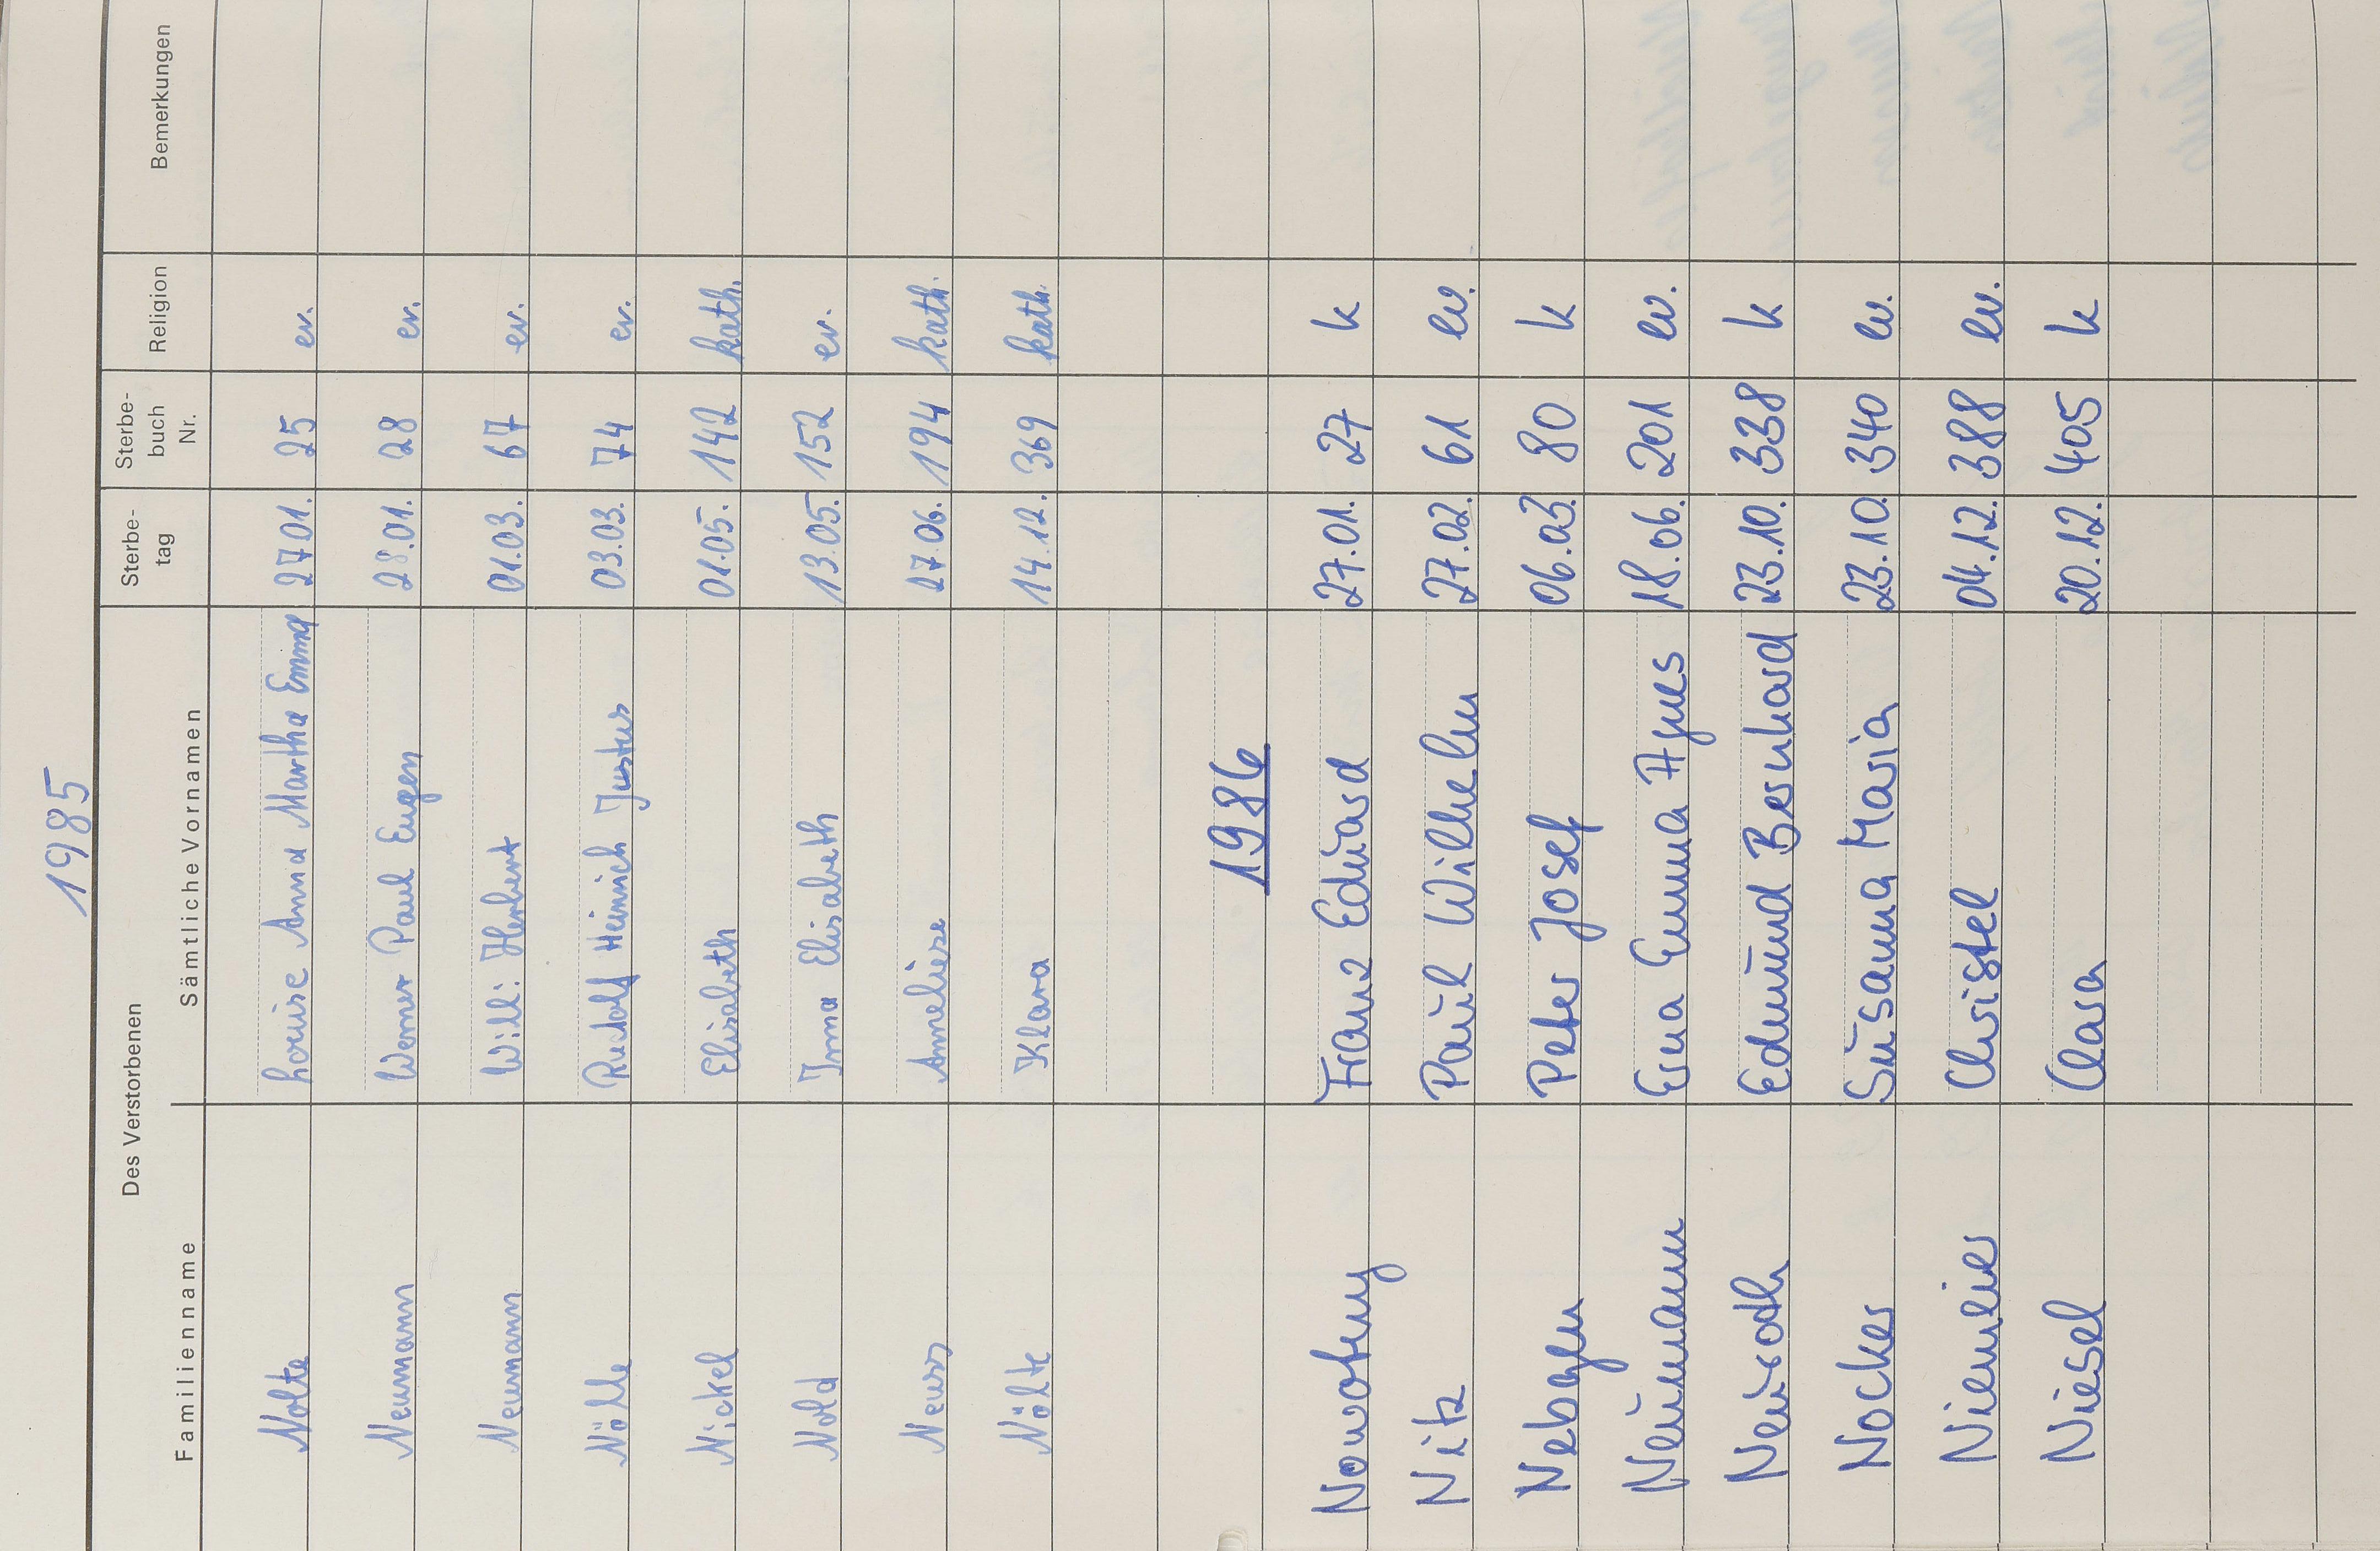 1985
Des Verstorbenen Sterbe-tag Sterbe-buch Nr. Religion Bemerkungen
Familienname Sämtliche Vornamen
Nolte Louise Anna Martha Emma 27.01. 25 ev.
Neumann Werner Paul Eugen 28.01. 28 ev.
Neumann Willi Herbert 01.03. 67 ev.
Nölle Rudolf Heinrich Justus 03.03. 74 ev.
Nickel Elisabeth 01.05. 142 kath.
Nold Irma Elisabeth 13.05. 152 ev.
Neuss Anneliese 27.06. 194 kath.
Nölte Klara 14.12. 369 kath.
1986
Nowotny Franz Eduard 27.01. 27 k
Nitz Paul Wilhelm 27.02. 61 ev.
Nebgen Peter Josef 06.03. 80 k
Neumann Erna Emma Agnes 18.06. 201 ev.
Neuroth Edmund Bernhard 23.10. 338 k
Nocker Susanna Maria 23.10. 340 ev.
Niemeier Christel 04.12. 388 ev.
Niesel Clara 20.12. 405 k